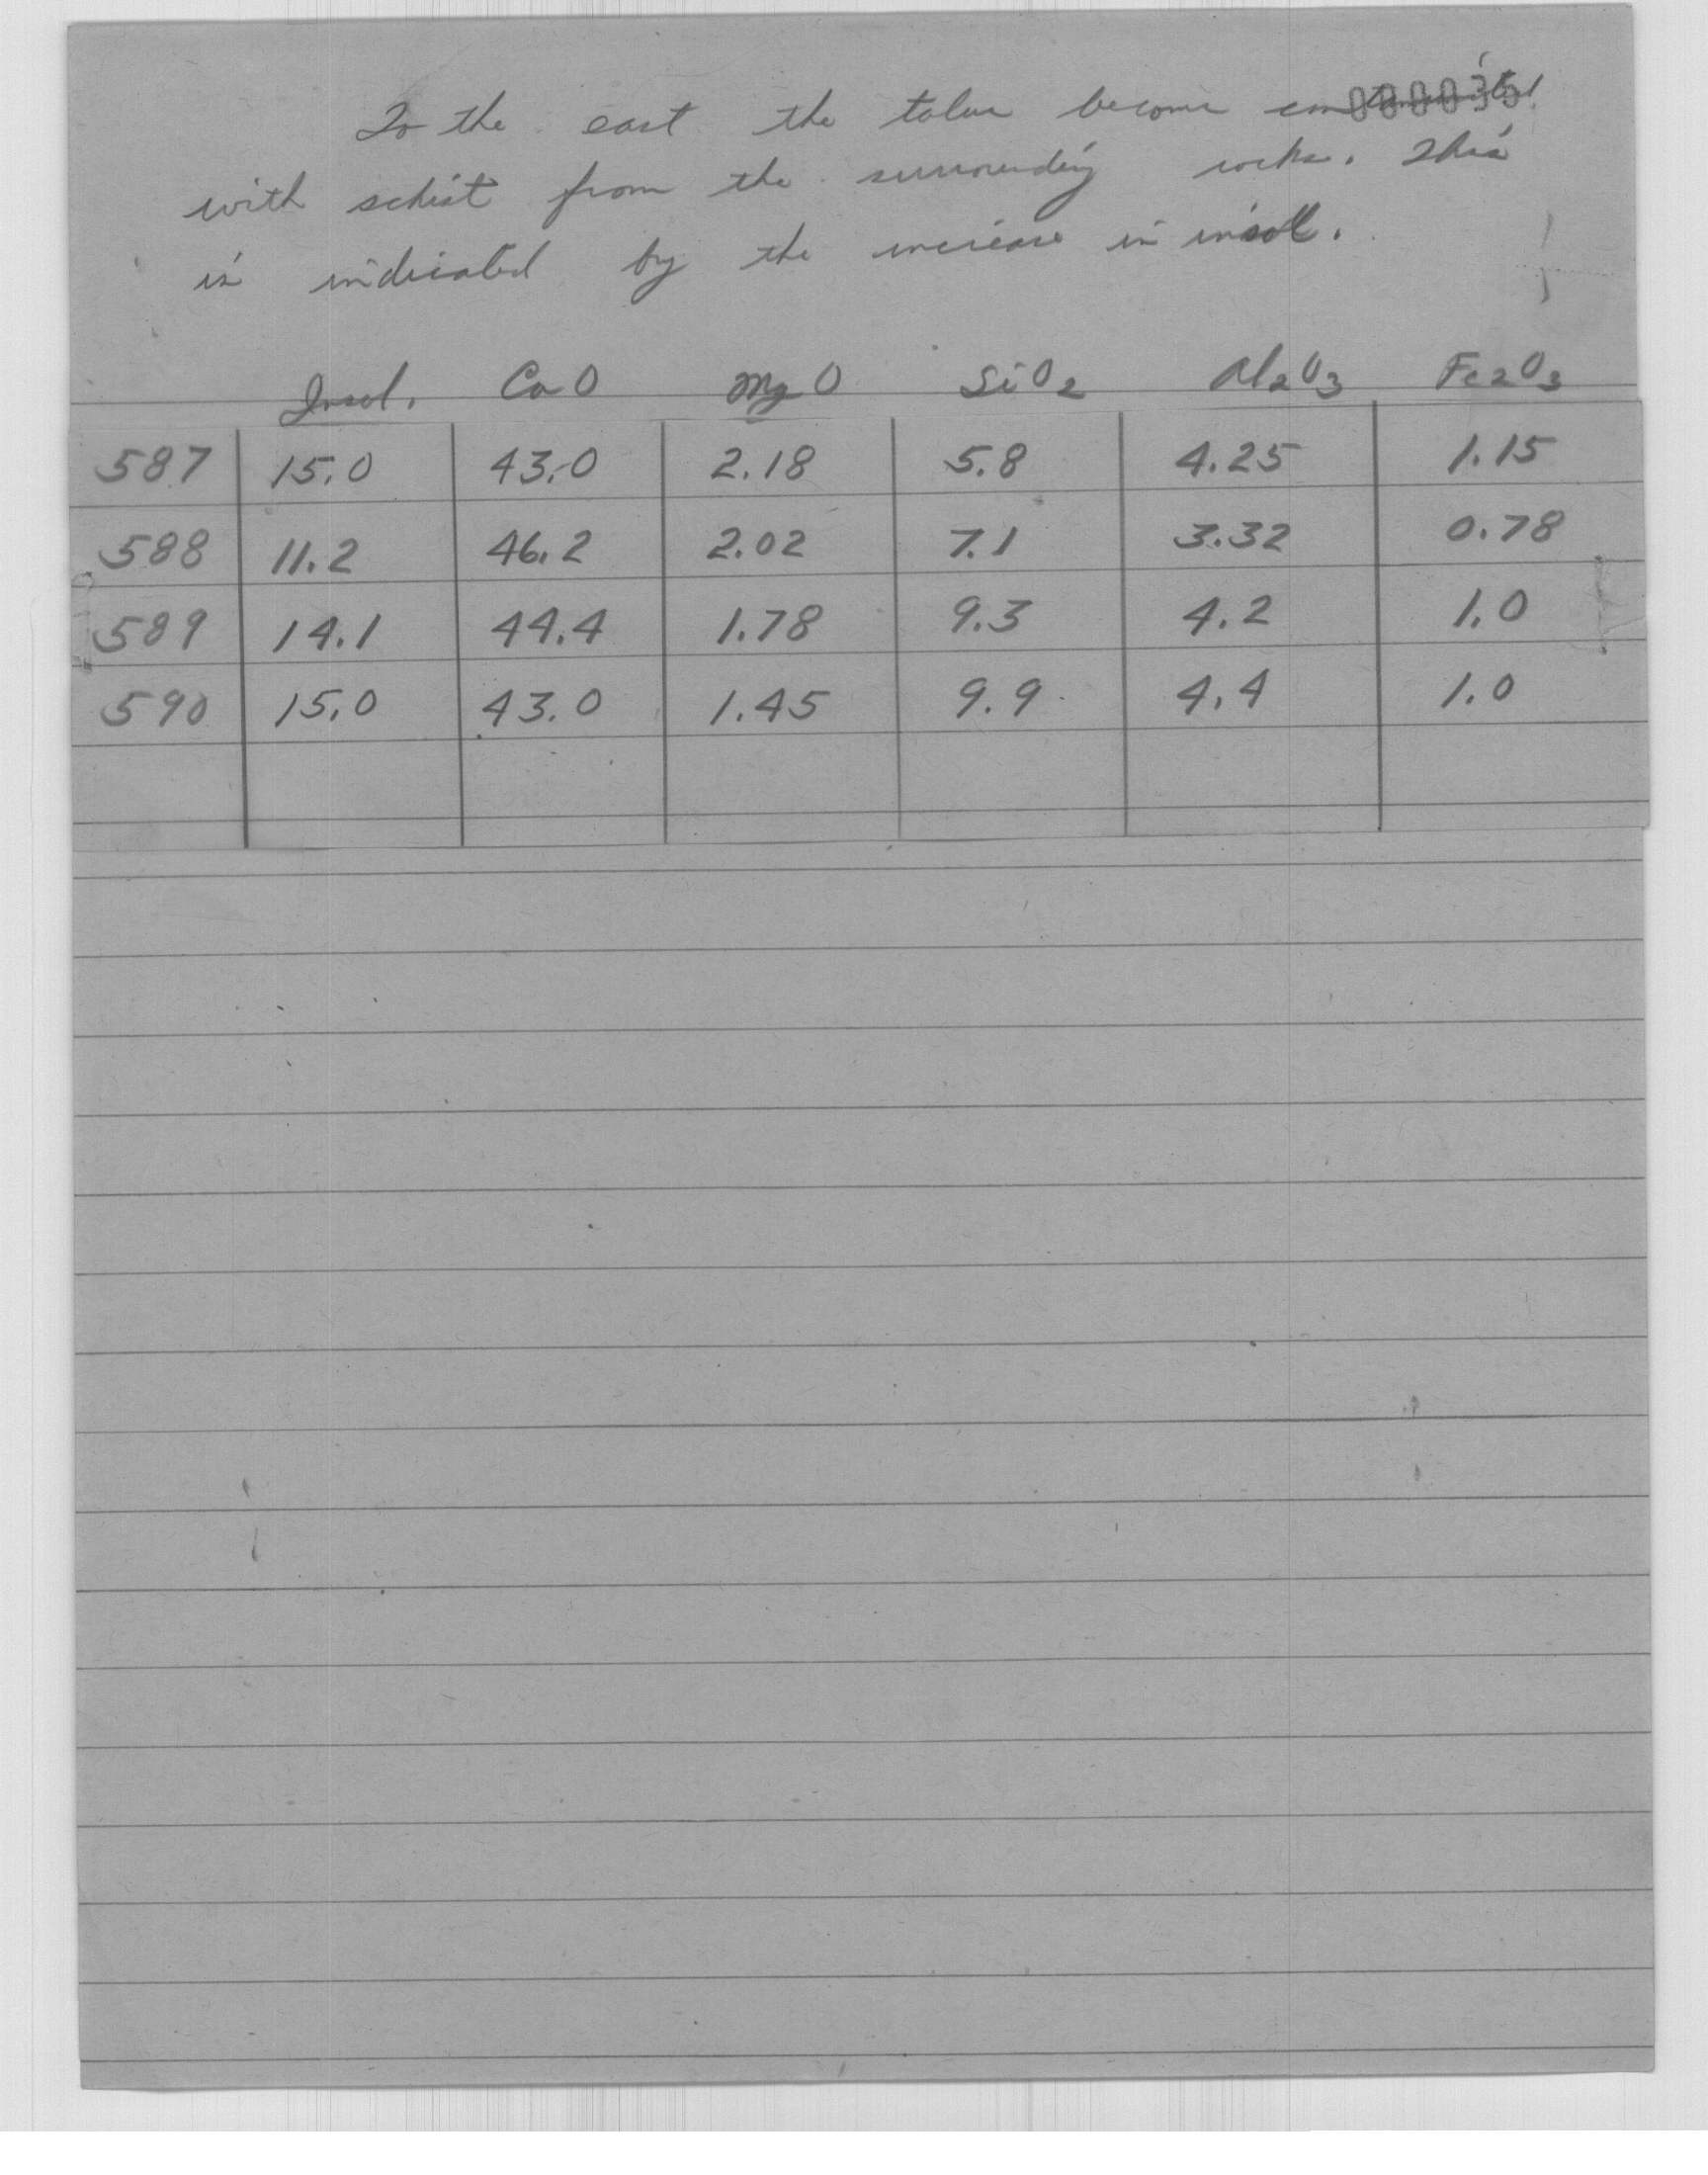 000035
To the east the talus become contaminated
with schist from the surrounding rocks. This
is indicated by the increase in insol.
Insol. CaO MgO SiO2 Al2O3 Fe2O3
587 15.0 43.0 2.18 5.8 4.25 1.15
588 11.2 46.2 2.02 7.1 3.32 0.78
589 14.1 44.4 1.78 9.3 4.2 1.0
590 15.0 43.0 1.45 9.9 4.4 1.0